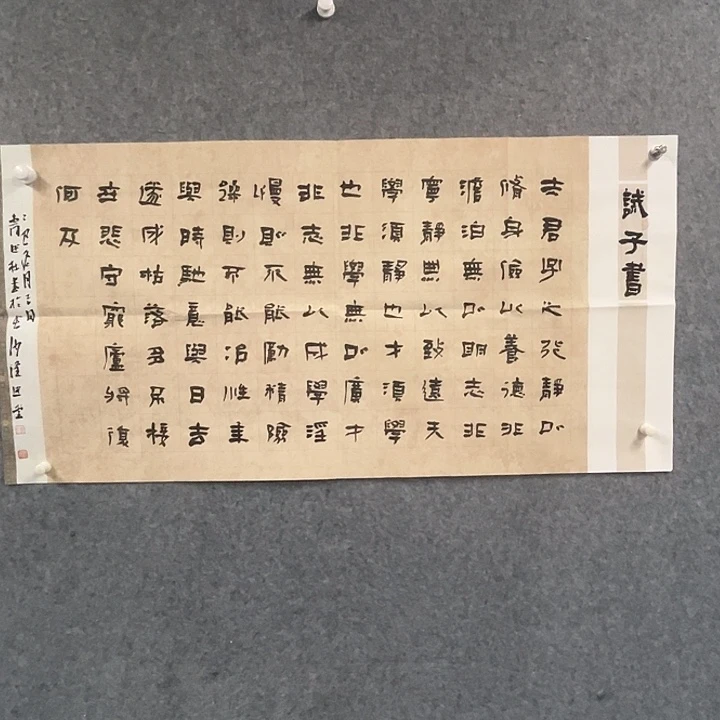 誡子書
夫君子之行靜以
脩身儉以養德非
澹泊無以明志非
寧靜無以致遠夫
學須靜也才須學
也非學無以廣才
非志無以成學淫
慢則不能勵精險
躁則不能治性年
與時馳意與日去
遂成枯落多不接
世悲守窮廬將復
何及